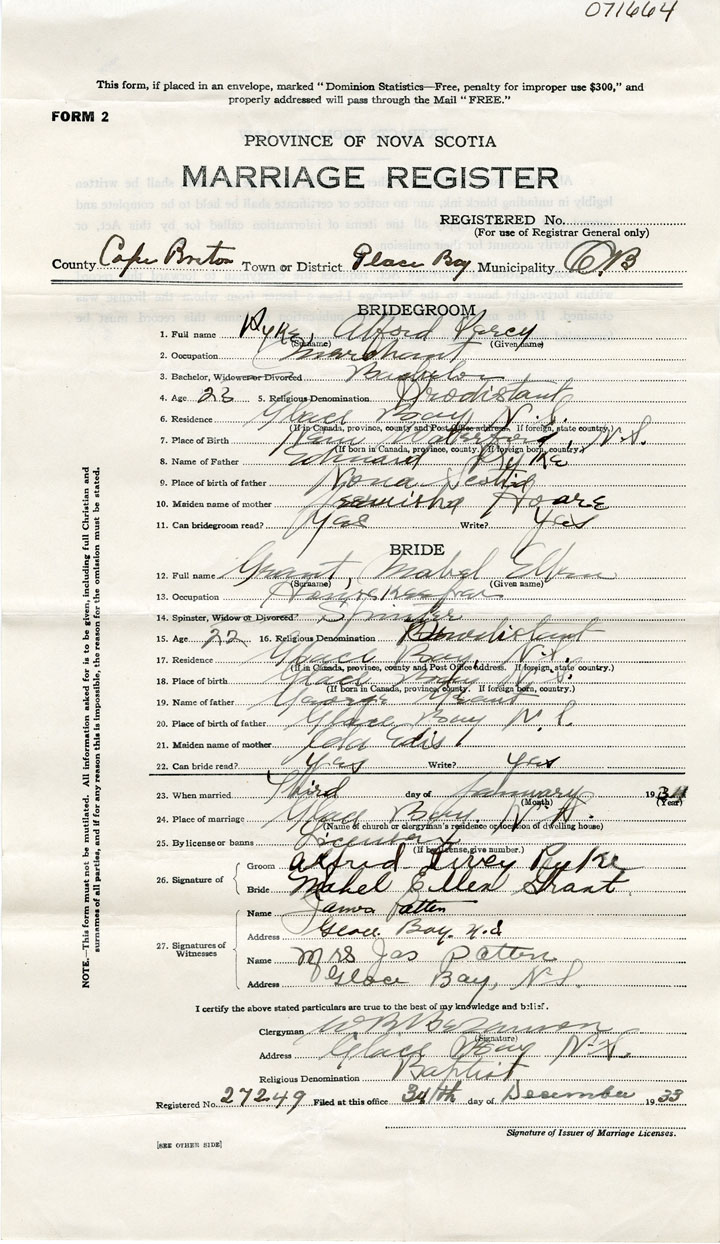 071664
This form, if placed in an envelope, marked "Dominion Statistics—Free, penalty for improper use $300," and
properly addressed will pass through the Mail "FREE."
FORM 2
PROVINCE OF NOVA SCOTIA
MARRIAGE REGISTER
REGISTERED No.
(For use of Registrar General only)
County Cape Breton Town or District Glace Bay Municipality CB
BRIDEGROOM
1. Full name Ryke, Alford Percy
(Surname) (Given name)
2. Occupation Merchant
3. Bachelor, Widower or Divorced Bachelor
4. Age 23 5. Religious Denomination Prodistant
6. Residence Glace Bay N.S.
(If in Canada, province, county and Post Office address. If foreign, state country.)
7. Place of Birth New Waterford, N.S.
(If born in Canada, province, county. If foreign born, country.)
8. Name of Father Edward Ryke
9. Place of birth of father Nova Scotia
10. Maiden name of mother Hoare
11. Can bridegroom read? Yas Write? Yas
BRIDE
12. Full name Grant, Mabel Ellen
(Surname) (Given name)
13. Occupation
14. Spinster, Widow or Divorced? Spinster
15. Age 22 16. Religious Denomination
17. Residence Glace Bay, N.S.
(If in Canada, province, county and Post Office address. If foreign, state country.)
18. Place of birth Glace Bay N.S.
(If born in Canada, province, county. If foreign born, country.)
19. Name of father George Grant
20. Place of birth of father Glace Bay N.S.
21. Maiden name of mother Ida Edis
22. Can bride read? Yas Write? Yas
23. When married Third day of January 1934
(Month) (Year)
24. Place of marriage Glace Bay, N.S.
(Name of church or clergyman's residence or location of dwelling house)
25. By license or banns
(If by license, give number.)
26. Signature of Groom Alfred Ryke
Bride Mabel Ellen Grant
27. Signatures of Witnesses
Name James Patten
Address Glace Bay N.S
Name Mrs Jas Patten
Address Glace Bay, N.S.
I certify the above stated particulars are true to the best of my knowledge and belief.
Clergyman
(Signature)
Address Glace Bay N.S.
Religious Denomination Baptist
Registered No. 27249 Filed at this office day of December 1933
Signature of Issuer of Marriage Licenses.
[SEE OTHER SIDE]
NOTE.—This form must not be mutilated. All information asked for is to be given, including full Christian and
surnames of all parties, and if for any reason this is impossible, the reason for the omission must be stated.